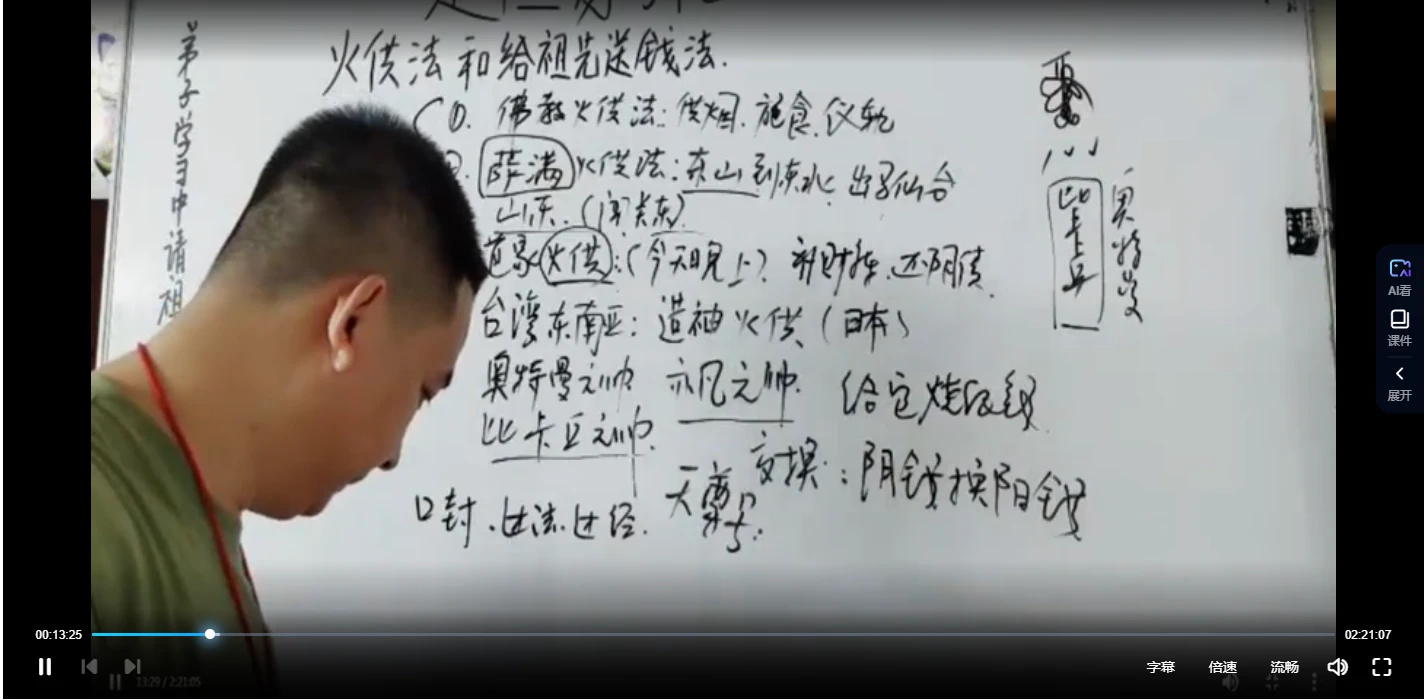 弟子学习中请祖
火供法和给祖先送钱法.
①. 佛教火供法:供烟.施食.仪轨
萨满火供法:东山到东水 出马仙台
山东.(闯关东)
道家火供:(今天晚上)补财库.还阴债.
台湾东南亚:造神火供(日本)
奥特曼元帅 亦凡元帅. 给它烧纸钱
比卡丘元帅.
交换:阴钱换阳钱
口封.过法.过经.
比卡丘
奥特曼
AI看
课件
展开
00:13:25
02:21:07
字幕
倍速
流畅
13:29 / 2:21:05